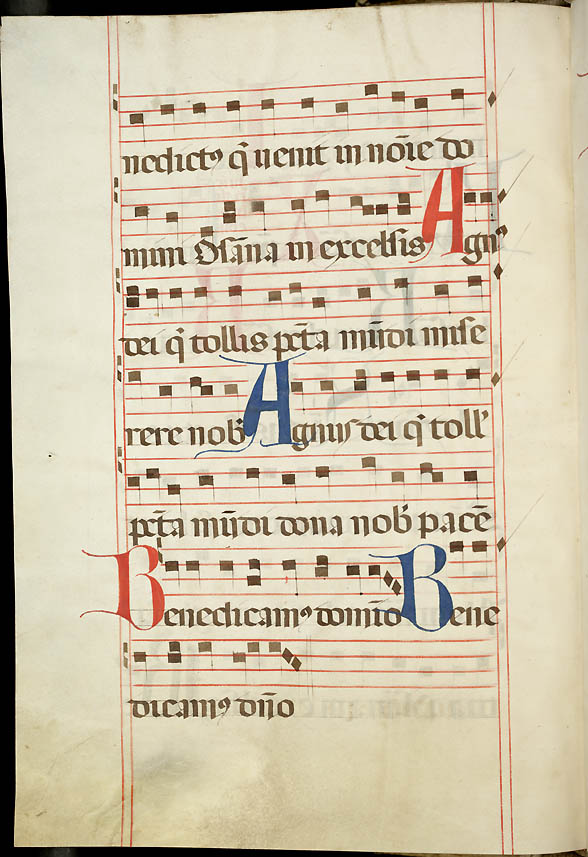 nedictꝰ q̄ uenit in nōie do
mini Osāna in excelsis Agnꝰ
dei q̄ tollis pc̄ta mūdi mise
rere nob̾ Agnus dei q̄ toll̾
pc̄ta mūdi dona nob̾ pacē
Benedicamꝰ domīo Bene
dicamꝰ dn̄o